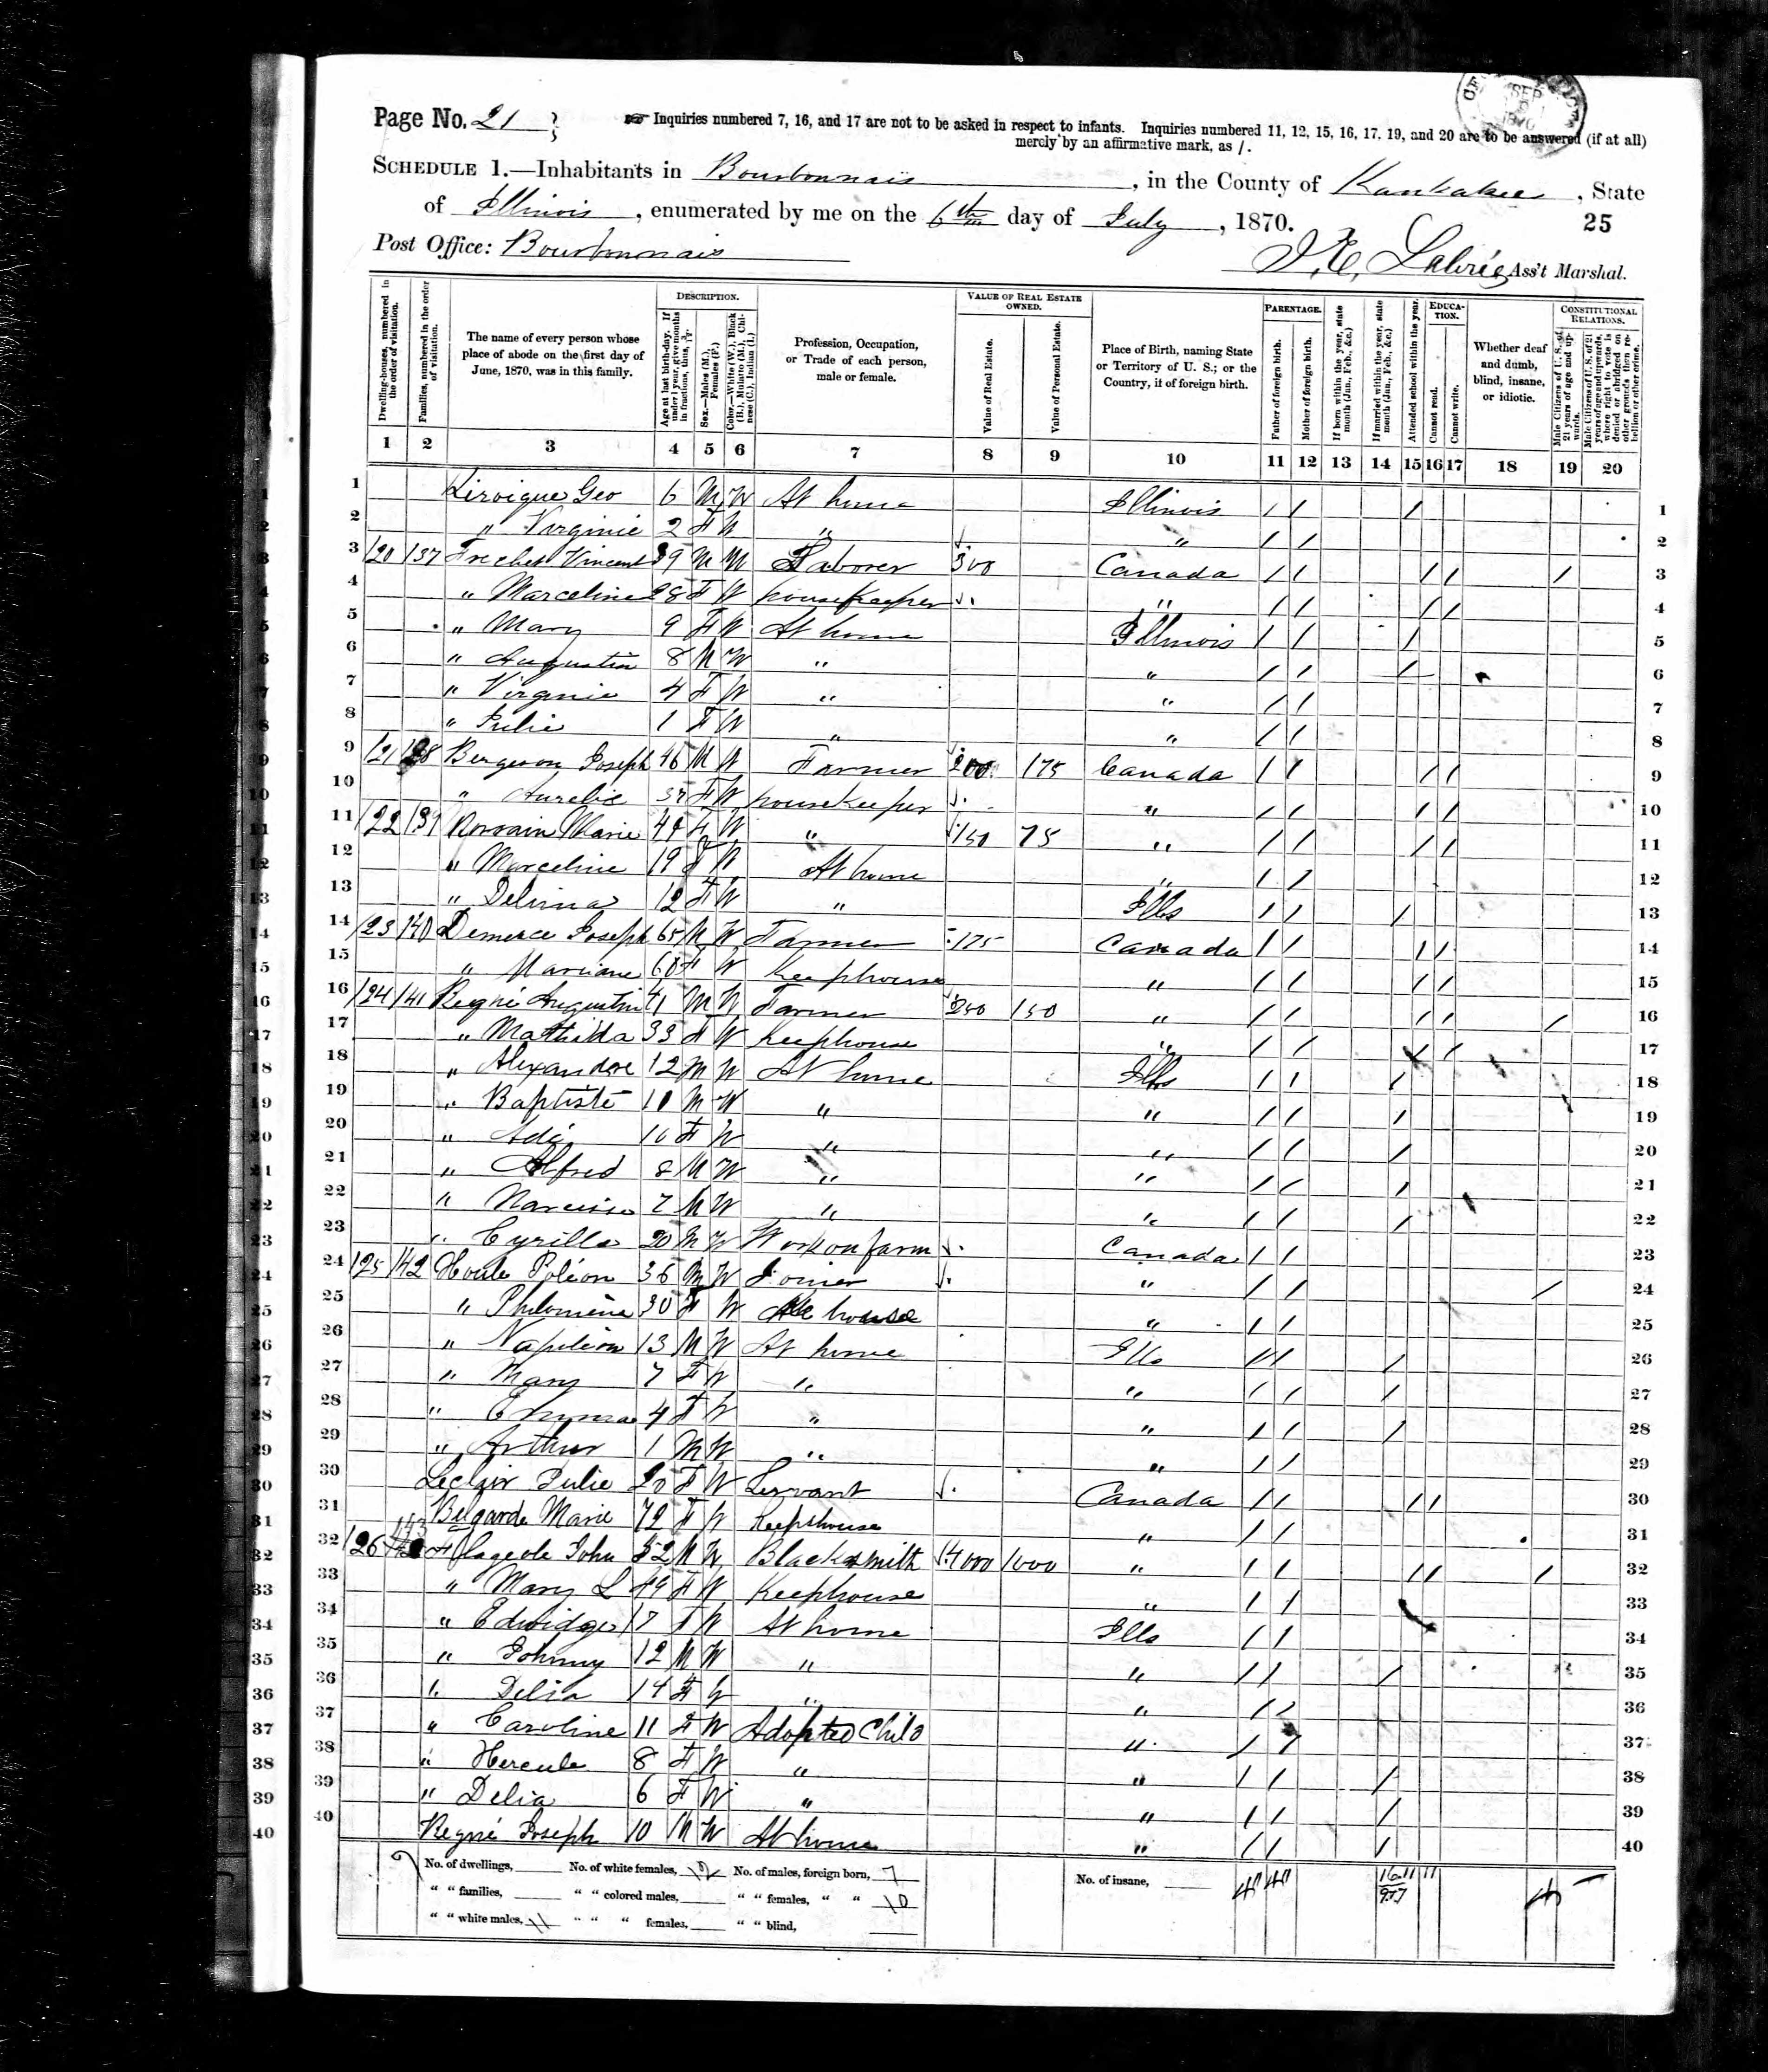 Page No. 21
Inquiries numbered 7, 16, and 17 are not to be asked in respect to infants. Inquiries numbered 11, 12, 15, 16, 17, 19, and 20 are to be answered (if at all)
merely by an affirmative mark, as /.
SCHEDULE 1.—Inhabitants in Bourbonnais, in the County of Kankakee, State
of Illinois, enumerated by me on the 6th day of July, 1870. 25
Post Office: Bourbonnais
Ass't Marshal.
Dwelling-houses, numbered in the order of visitation.
Families, numbered in the order of visitation.
The name of every person whose place of abode on the first day of June, 1870, was in this family.
DESCRIPTION.
Age at last birth-day. If under 1 year, give months in fractions, thus, 3/12.
Sex.—Males (M.), Females (F.)
Color.—White (W.), Black (B.), Mulatto (M.), Chinese (C.), Indian (I.)
Profession, Occupation, or Trade of each person, male or female.
VALUE OF REAL ESTATE OWNED.
Value of Real Estate.
Value of Personal Estate.
Place of Birth, naming State or Territory of U. S.; or the Country, if of foreign birth.
PARENTAGE.
Father of foreign birth.
Mother of foreign birth.
If born within the year, state month (Jan., Feb., &c.)
If married within the year, state month (Jan., Feb., &c.)
Attended school within the year.
EDUCATION.
Cannot read.
Cannot write.
Whether deaf and dumb, blind, insane, or idiotic.
CONSTITUTIONAL RELATIONS.
Male Citizens of U. S. of 21 years of age and upwards.
Male Citizens of U. S. of 21 years of age and upwards, where right to vote is denied or abridged on other grounds than rebellion or other crime.
1 2 3 4 5 6 7 8 9 10 11 12 13 14 15 16 17 18 19 20
1 Geo 6 M W At home Illinois / / / 1
2 " Virginie 2 F W " " / / 2
3 120 137 Vincent 39 M W Laborer 300 Canada / / / / / 3
4 " Marceline 28 F W housekeeper " / / / / 4
5 " Mary 9 F W At home Illinois / / / 5
6 " Augustin 8 M W " " / / / 6
7 " Virginie 4 F W " " / / 7
8 " Julie 1 F W " " / / 8
9 121 138 Bergeron Joseph 46 M W Farmer 200 175 Canada / / / / 9
10 " Aurelie 37 F W housekeeper " / / / / 10
11 122 139 Marie 44 F W " 150 75 " / / / / 11
12 " Marceline 19 F W At home " / / 12
13 " Delima 12 F W " Ills / / / 13
14 123 140 Joseph 65 M W Farmer 175 Canada / / / / 14
15 " 60 F W Keephouse " / / / / 15
16 124 141 Regné Augustin 41 M W Farmer 250 150 " / / / / / 16
17 " Mathilda 33 F W Keephouse " / / / / 17
18 " Alexandre 12 M W At home Ills / / / 18
19 " Baptiste 11 M W " " / / / 19
20 " 10 F W " " / / / 20
21 " Alfred 8 M W " " / / / 21
22 " Narcisse 7 M W " " / / / 22
23 " Cyrille 20 M W Work on farm Canada / / 23
24 125 142 Houle 36 M W Joiner " / / / 24
25 " Philomene 30 F W house " / / 25
26 " Napoleon 13 M W At home Ills / / / 26
27 " Mary 7 F W " " / / / 27
28 " Emma 4 F W " " / / / 28
29 " Arthur 1 M W " " / / 29
30 Leclair Julie 20 F W Servant Canada / / / / 30
31 Belgarde Marie 72 F W Keephouse " / / 31
32 126 143 Flageole John 52 M W Blacksmith 4000 1000 " / / / / / 32
33 " Mary L 49 F W Keephouse " / / 33
34 " Edwidge 17 F W At home Ills / / 34
35 " Johnny 12 M W " " / / / 35
36 " Delia 14 F W " " / / 36
37 " Caroline 11 F W Adopted Child " / / 37
38 " Hercule 8 F W " " / / / 38
39 " Delia 6 F W " " / / / 39
40 Regné Joseph 10 M W At home " / / / 40
No. of dwellings, No. of white females, No. of males, foreign born, 7 No. of insane,
" " families, " " colored males, " " females, " " 10
" " white males, " " " females, " " blind,